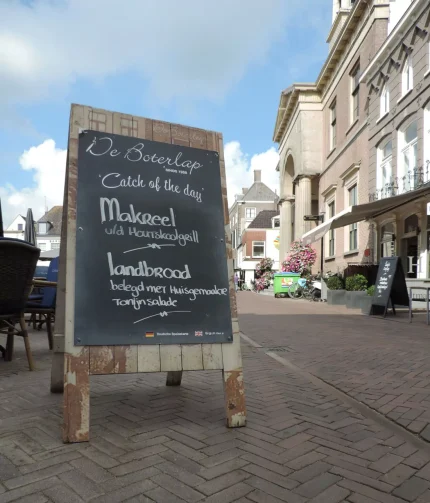 De Boterlap
"Catch of the day"
Makreel
v/d Houtskoolgrill
landbrood
belegd met Huisgemaakte
Tonijn salade